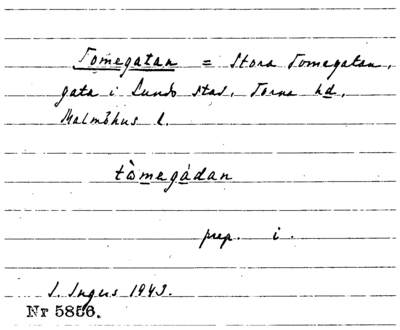 Tomegatan = Stora Tomegatan,
gata i Lunds stad, Torna hd,
Malmöhus l.
tòmegàdan
prep. i.
S. Ingers 1943.
Nr 5856.